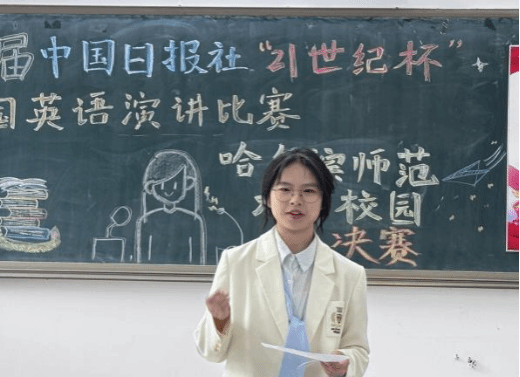 届中国日报社“21世纪杯”
国英语演讲比赛
哈尔滨师范
校园
决赛